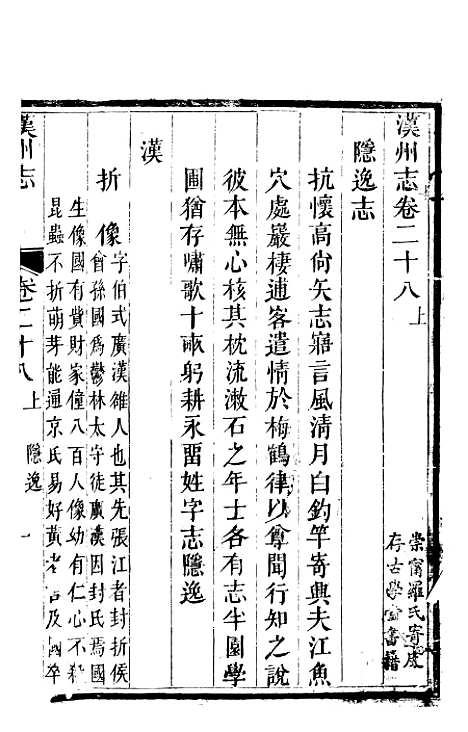 漢州志卷二十八上
崇甯羅氏寄廢
存古學會書籍
隱逸志
抗懷高尙矢志寤言風淸月白釣竿寄興夫江魚
穴處巖棲逋客遣情於梅鶴律以尊聞行知之說
彼本無心核其枕流漱石之年士各有志半園學
圃猶存嘯歌十畝躬耕永畱姓字志隱逸
漢
折像字伯式廣漢雒人也其先張江者封折侯
曾孫國爲鬱林太守徒廣漢因封氏焉國
生像國有貲財家僮八百人像幼有仁心不殺
昆蟲不折萌芽能通京氏易好黃老言及國卒
漢州志
卷二十八上
隱逸
一